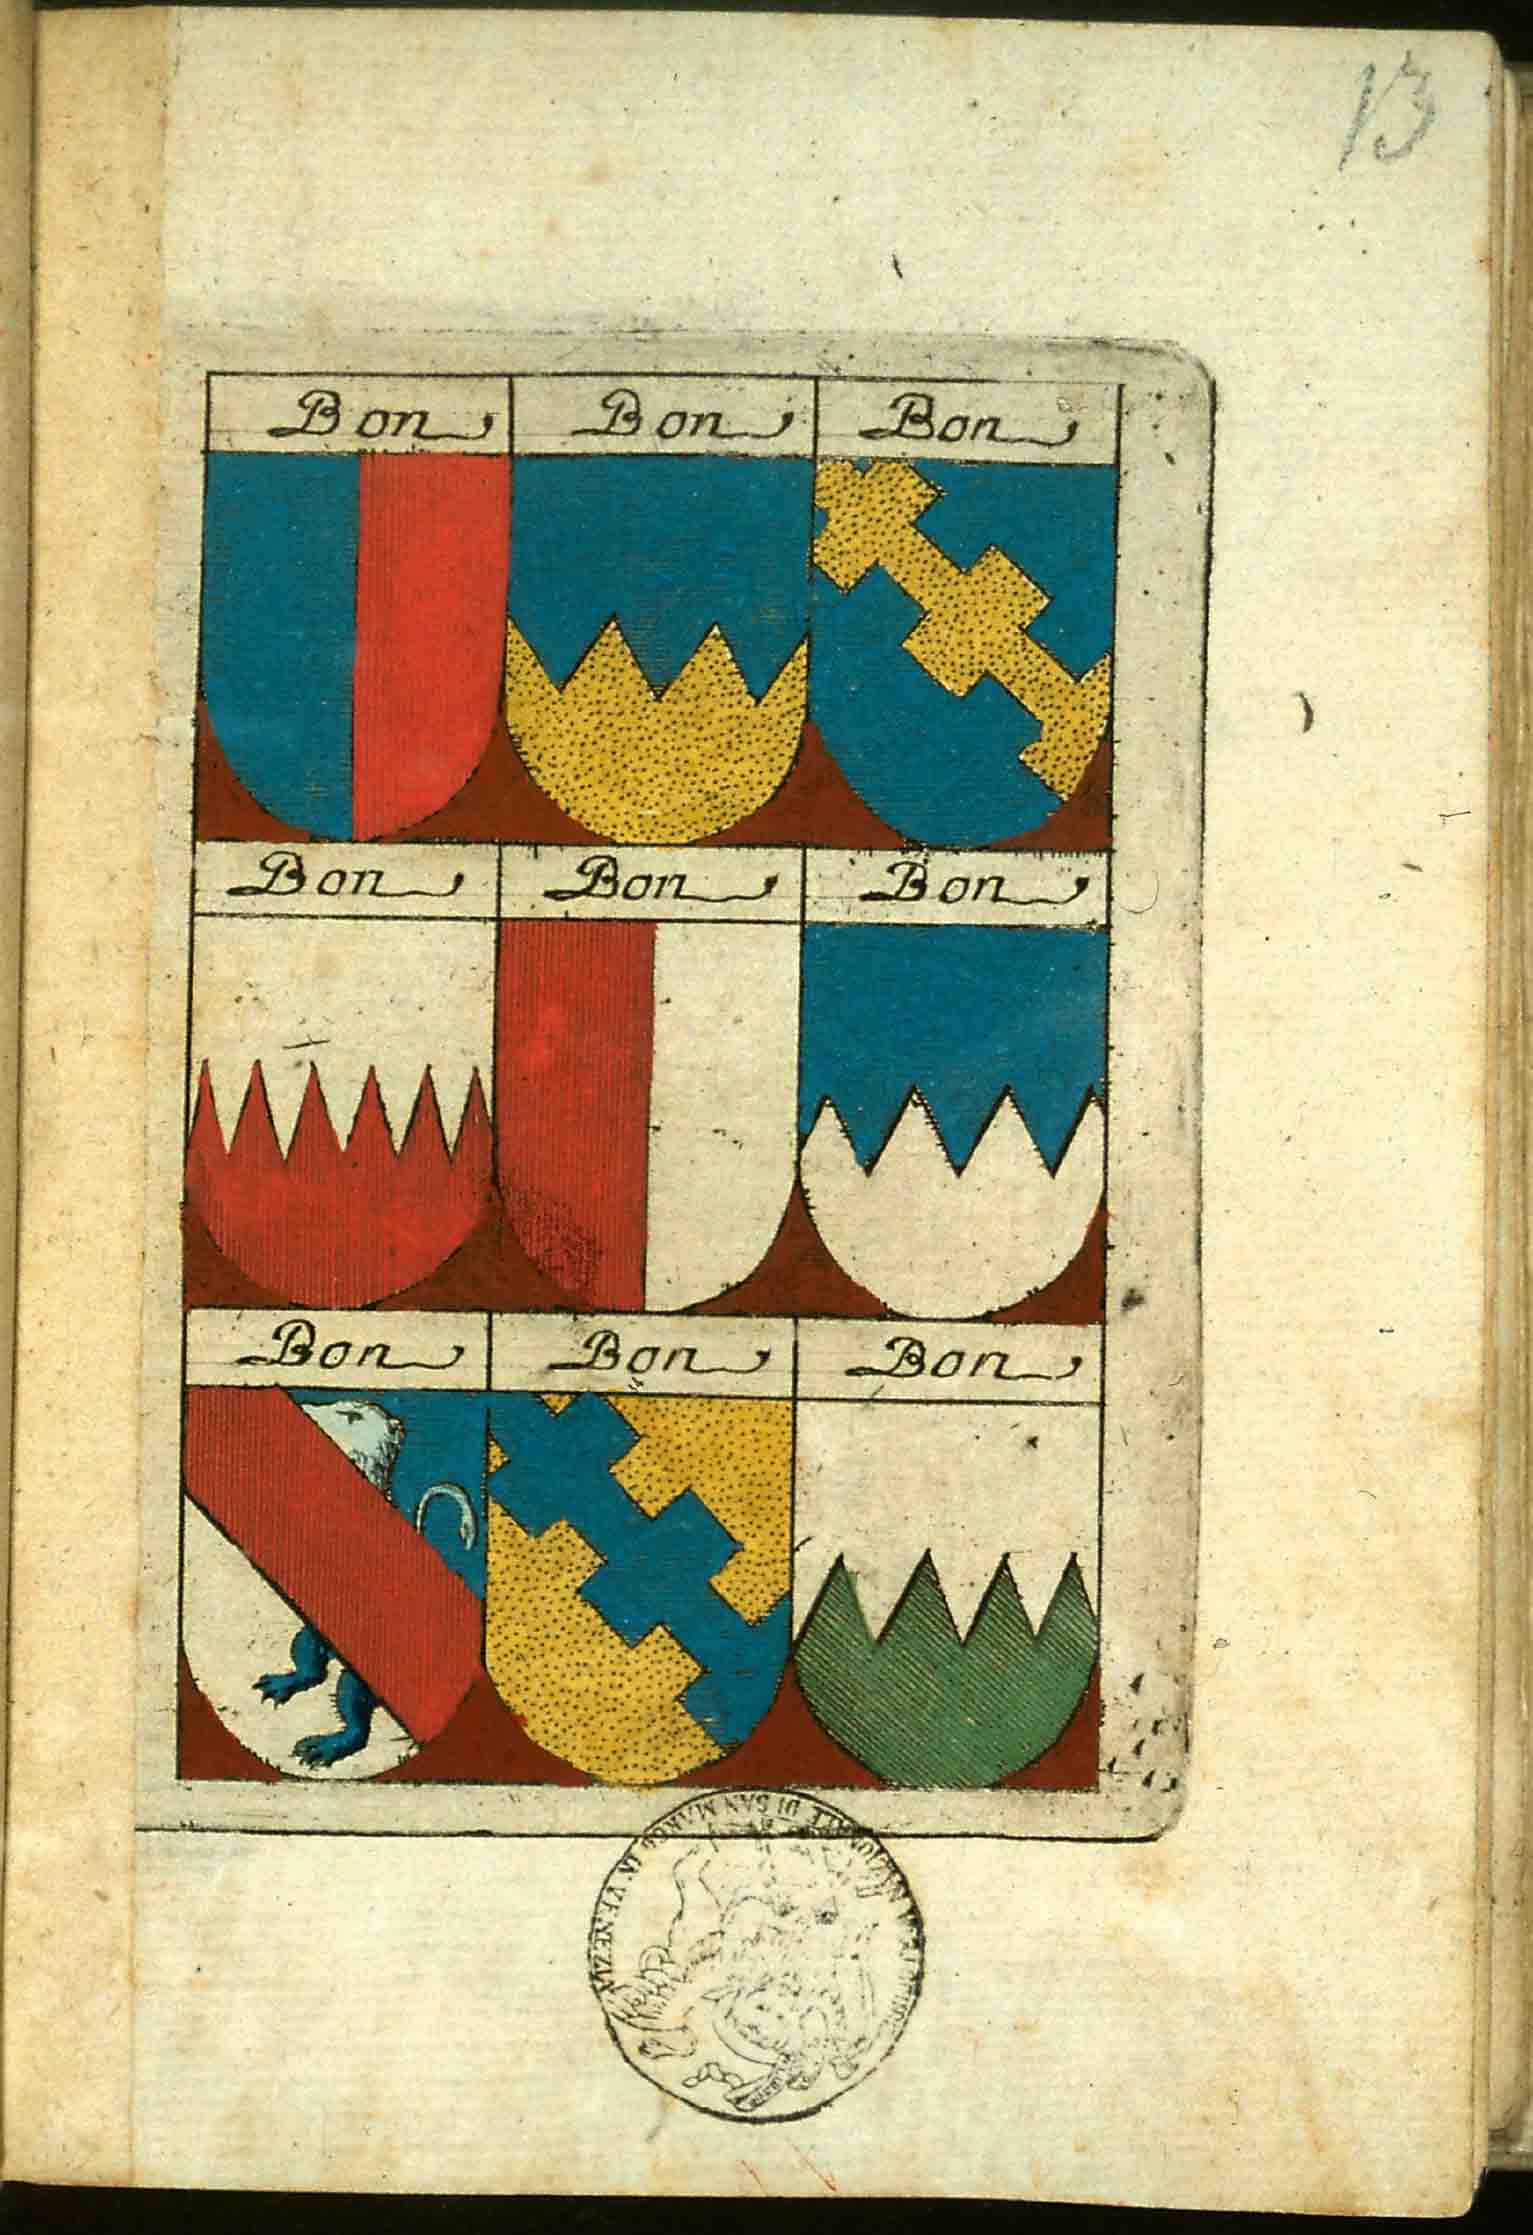 13
Bon Bon Bon
Bon Bon Bon
Bon Bon Bon
DI SAN MARCO IN VENEZIA